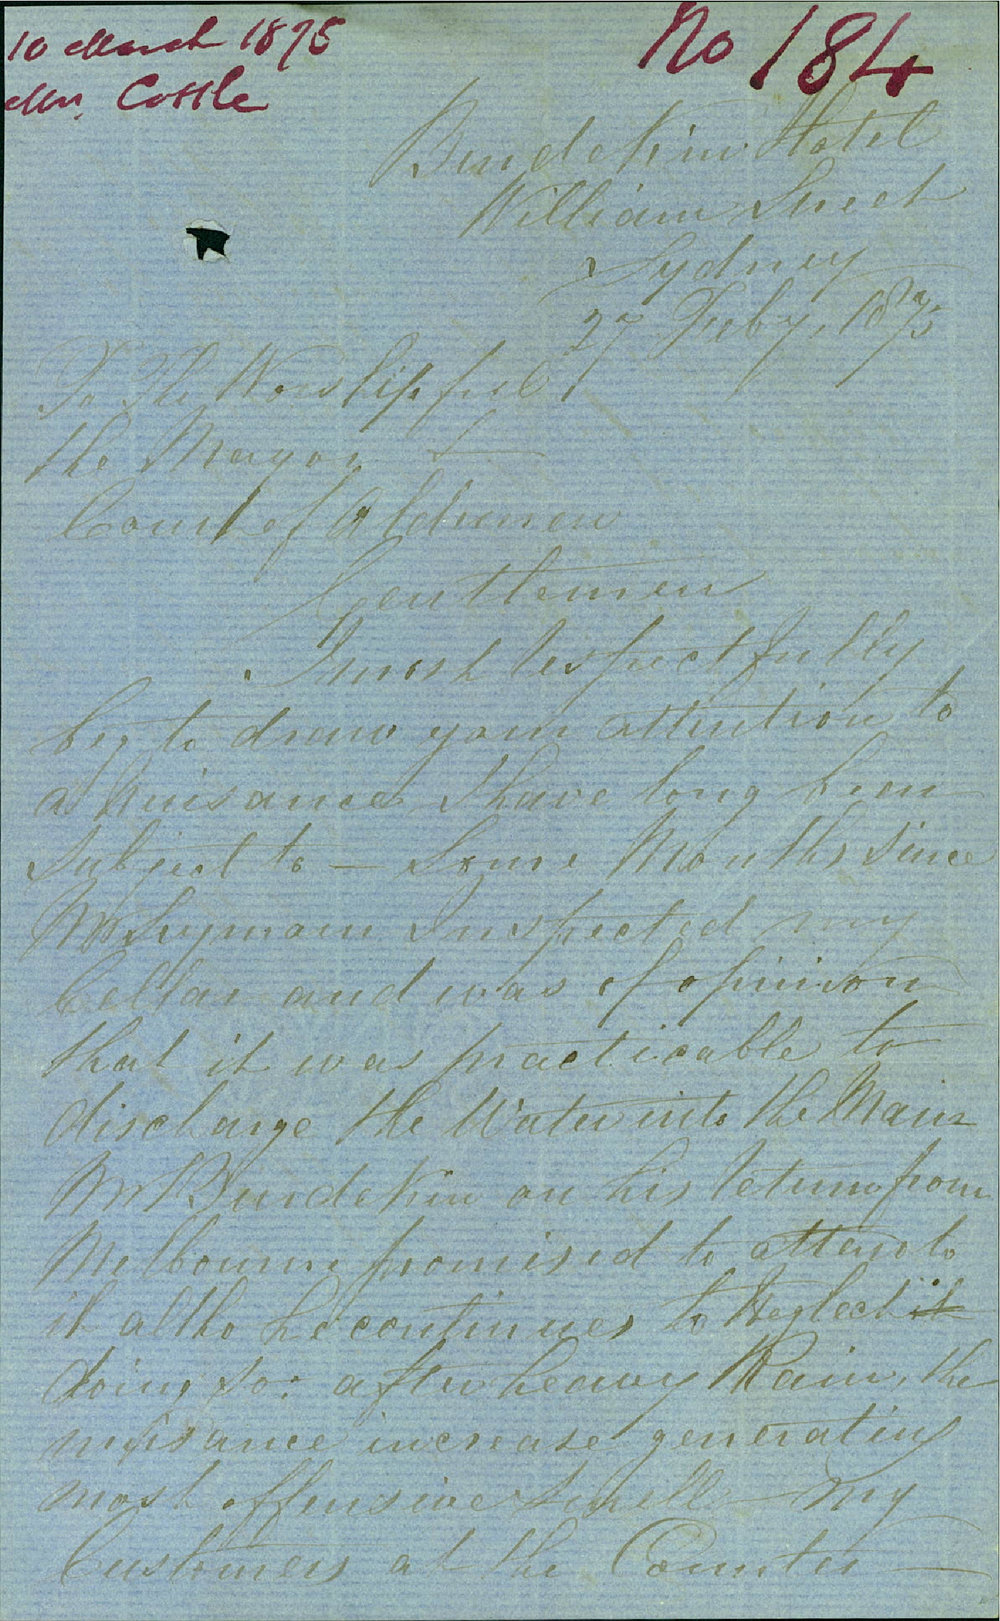 10 March 1875
No 184
Mr. Cottle
Burdekin Hotel
William Street
Sydney
27 Feby, 1875
To The Worshipful
the Mayor &
Court of Aldermen
Gentlemen
I most respectfully
beg to draw your attention to
a Nuisance I have long been
subject to — Some Months since
Mr Seymour Inspected my
Cellar and was of opinion
that it was practicable to
discharge the Water into the Main
Mr Burdekin on his return from
Melbourne promised to attend to
it altho he continues to Neglect it
doing so: after heavy Rain, the
nuisance increase generating
most offensive smell — My
Customers at the Counter —